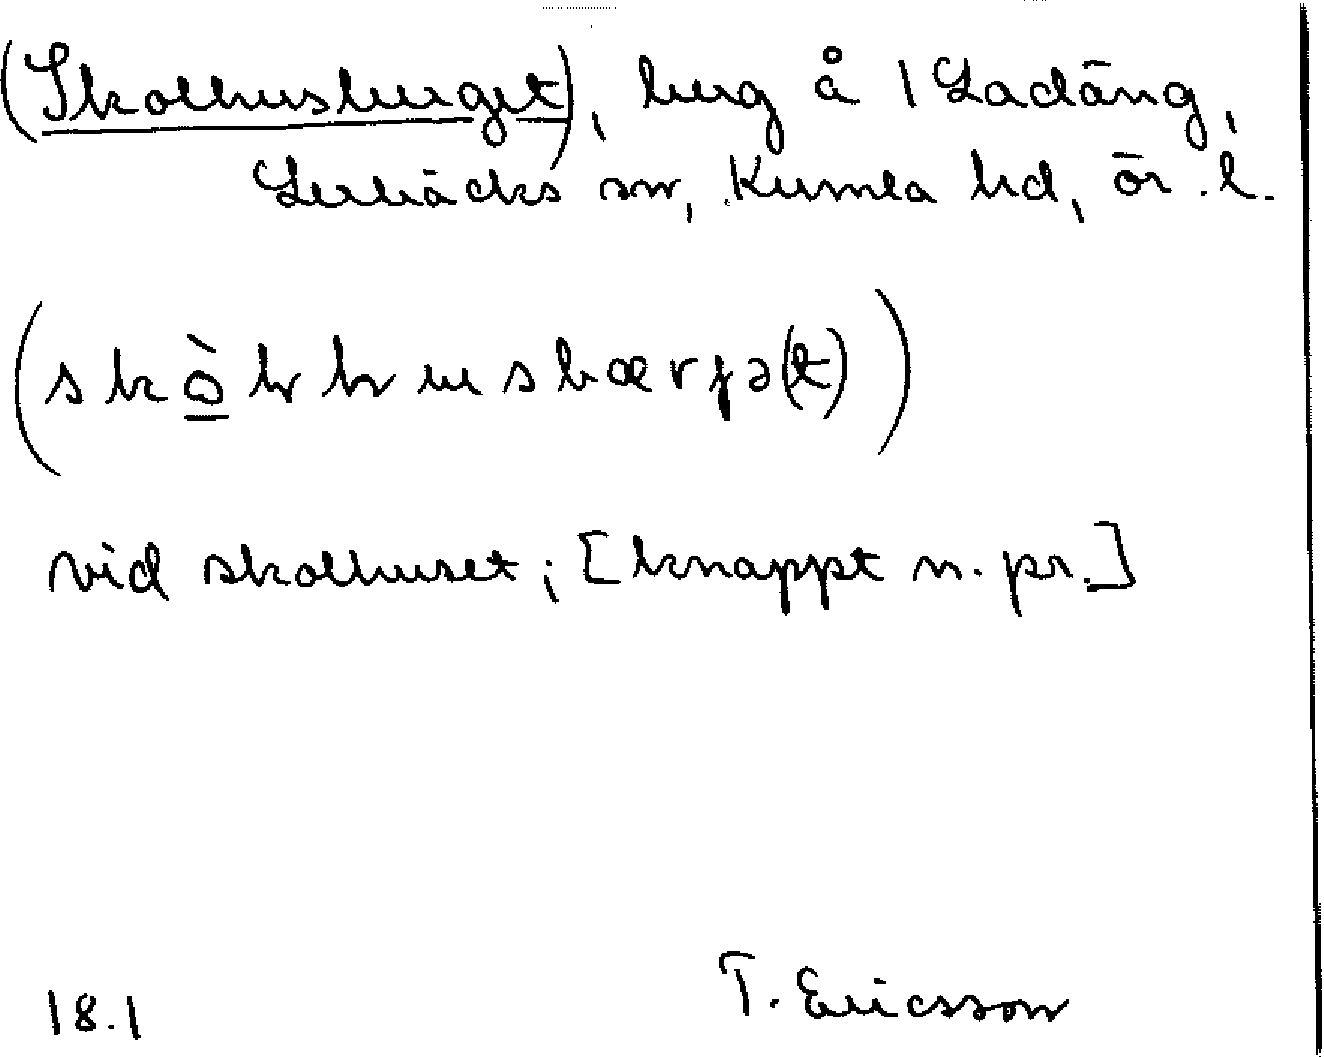 (Skolhusberget), berg å 1 Ladäng,
Lerbäcks sn, Kumla hd, ör. l.
vid skolhuset; [knappt n. pr.]
T. Ericsson
18.1